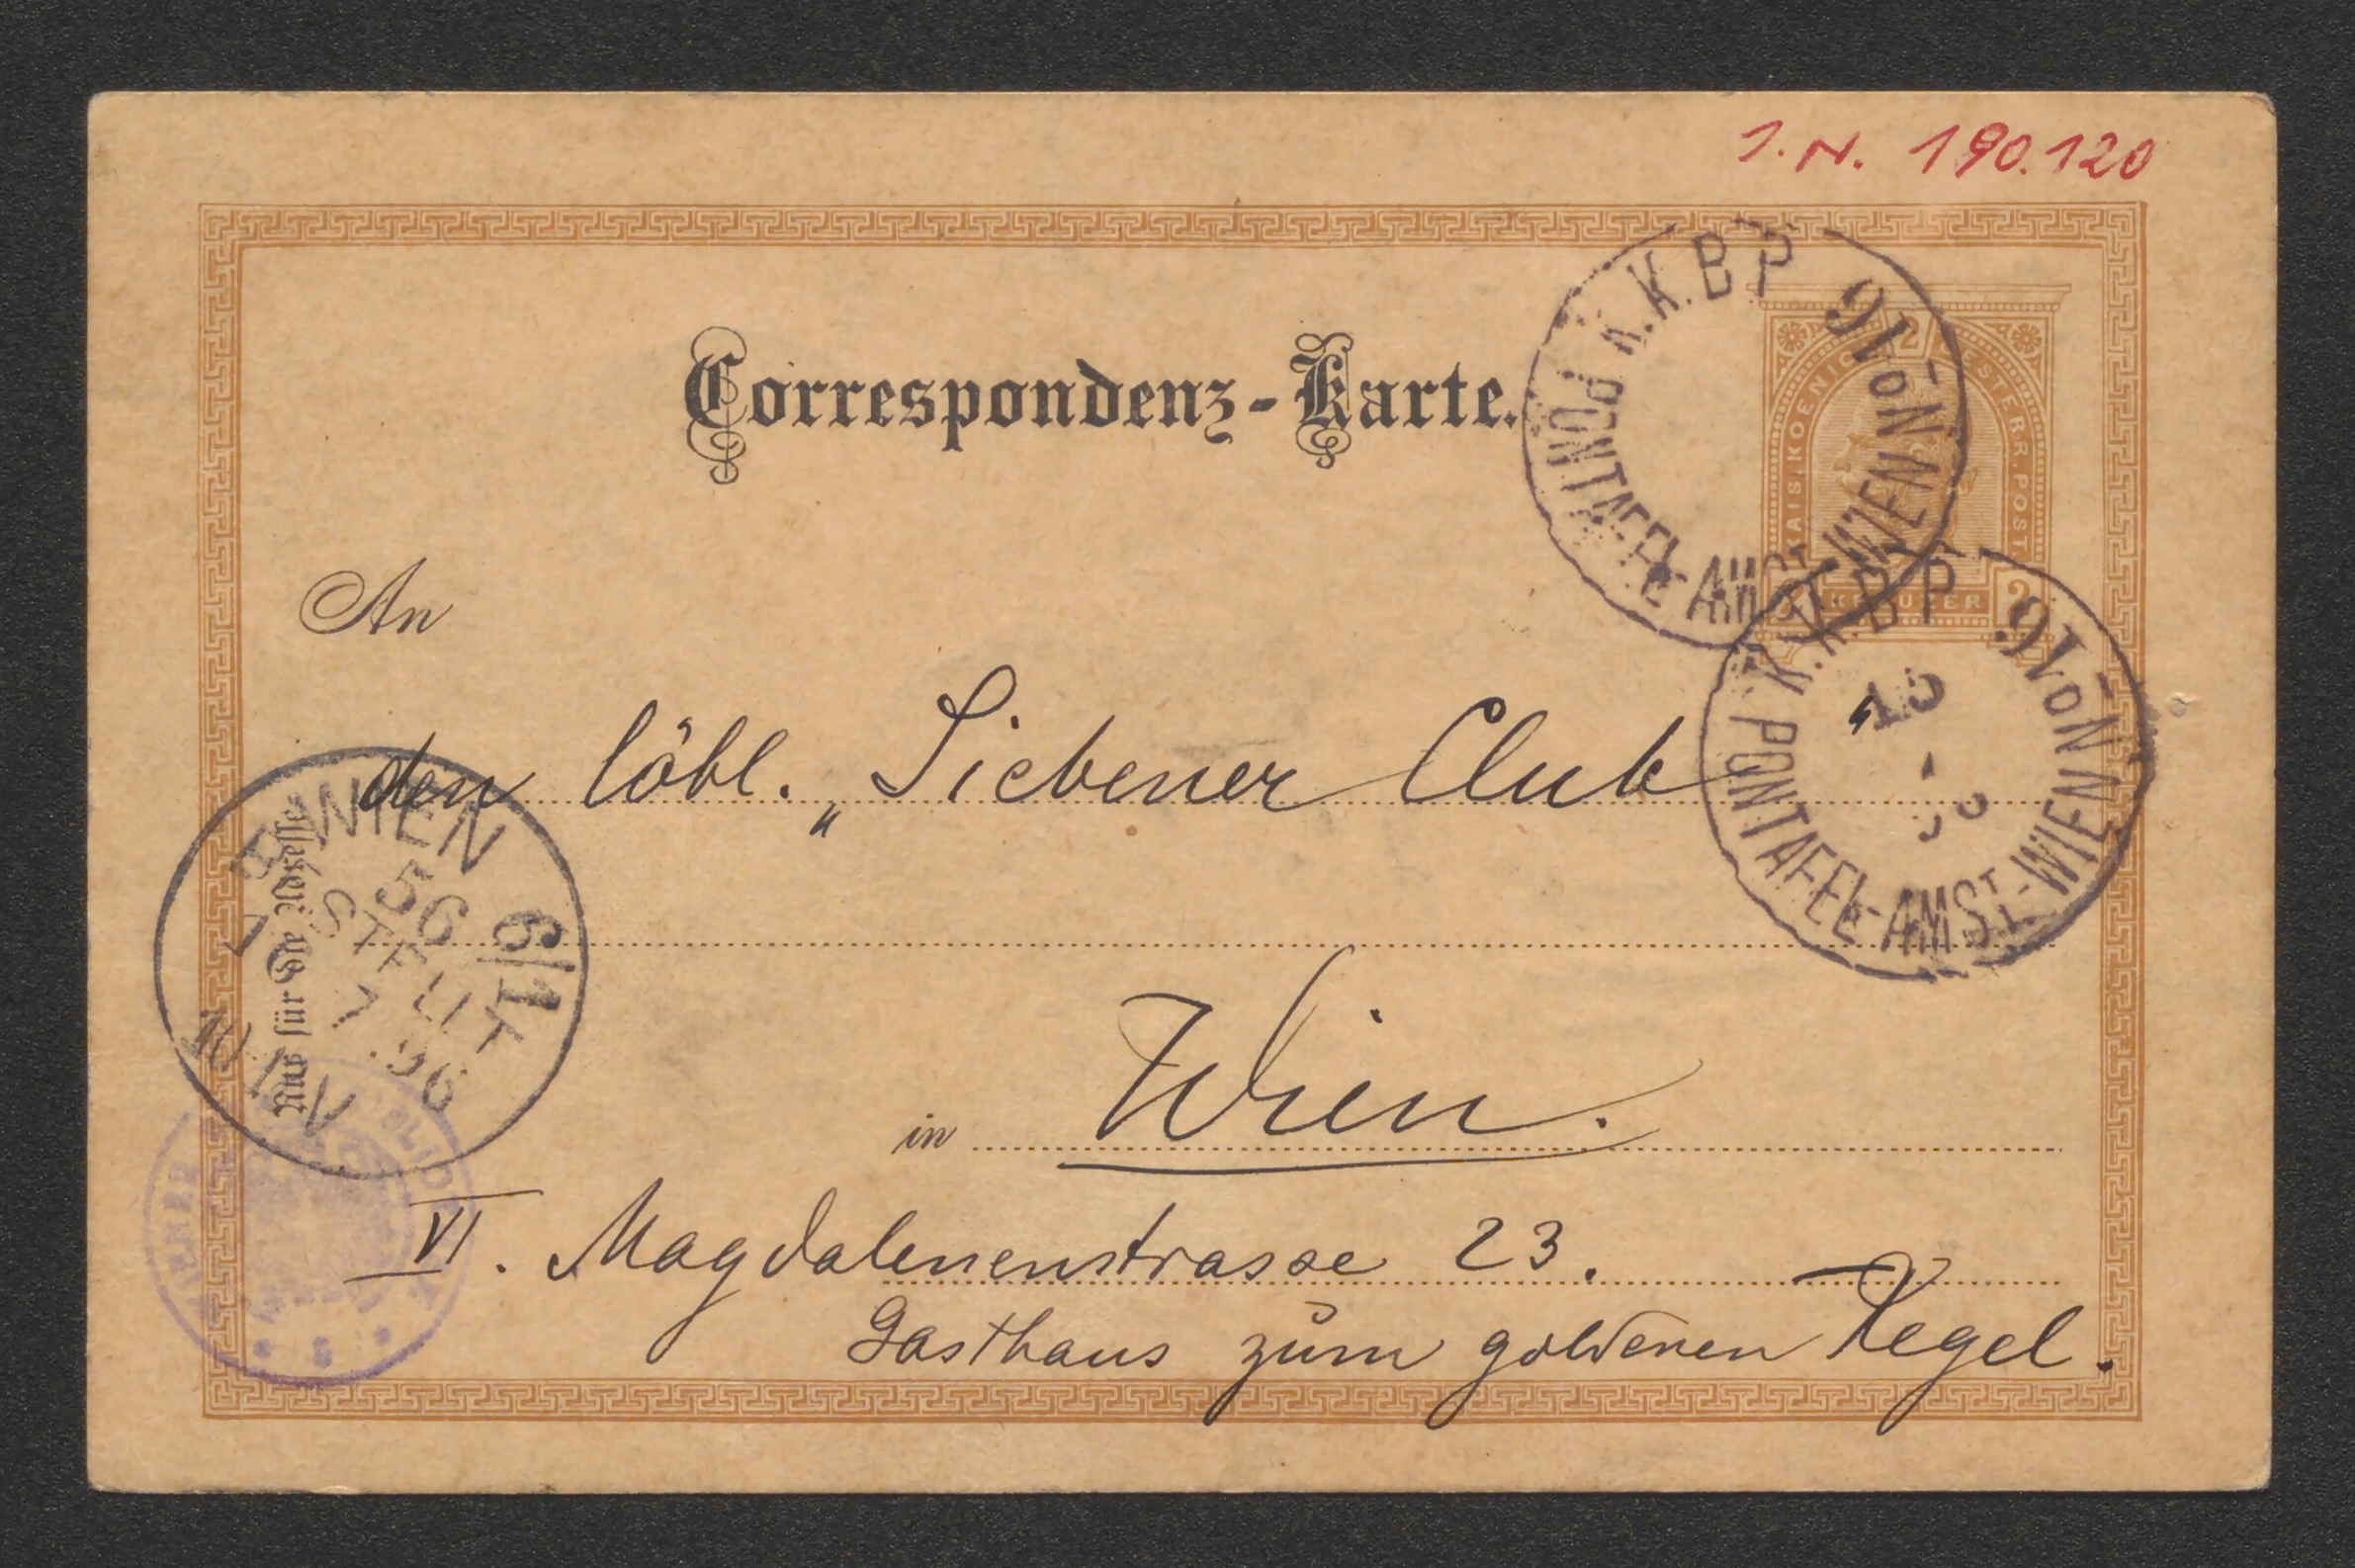 I. N. 190.120
Correspondenz-Karte.
K.K.B P 91 No 16 PONTAFEL-AMST-WIEN
KAIS. KOENIGL. 2 OESTERR. POST.
KREUZER 2
K.K.B P 91 No 16 PONTAFEL-AMST.-WIEN
15
An
den löbl. „Siebener Club"
WIEN 6/1
BESTELLT
7 96
WIEN
Nur für die Adresse
in Wien.
VI. Magdalenenstrasse 23.
Gasthaus zum goldenen Kegel.
WIENER